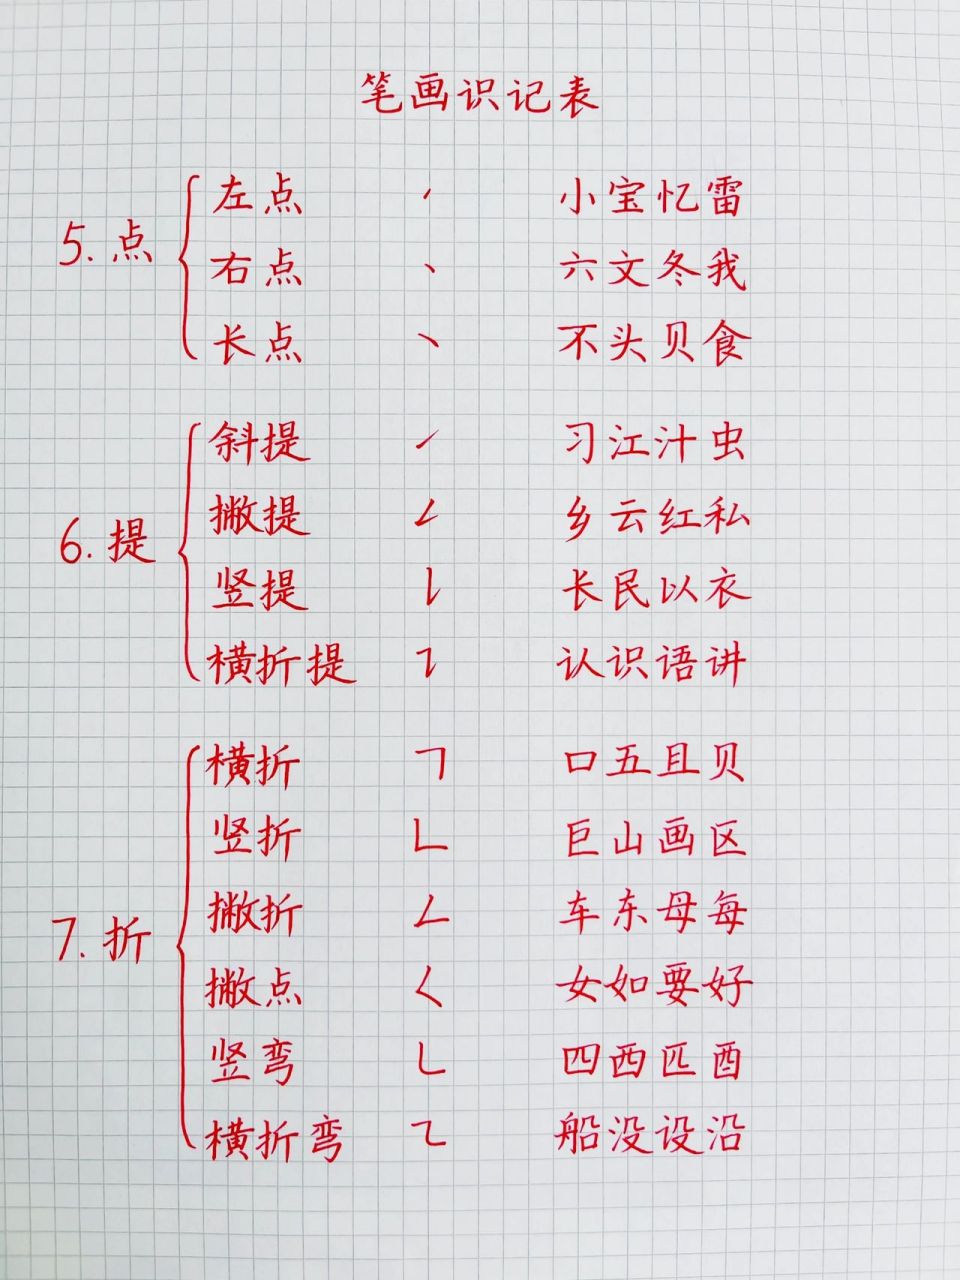 笔画识记表
5.点
左点 ㇒ 小宝忆雷
右点 ㇔ 六文冬我
长点 ㇔ 不头贝食
6.提
斜提 ㇀ 习江汁虫
撇提 ㇜ 乡云红私
竖提 ㇙ 长民以衣
横折提 ㇊ 认识语讲
7.折
横折 ㇕ 口五且贝
竖折 ㇗ 巨山画区
撇折 ㇜ 车东母每
撇点 ㇛ 女如要好
竖弯 ㇄ 四西匹酉
横折弯 ㇍ 船没设沿